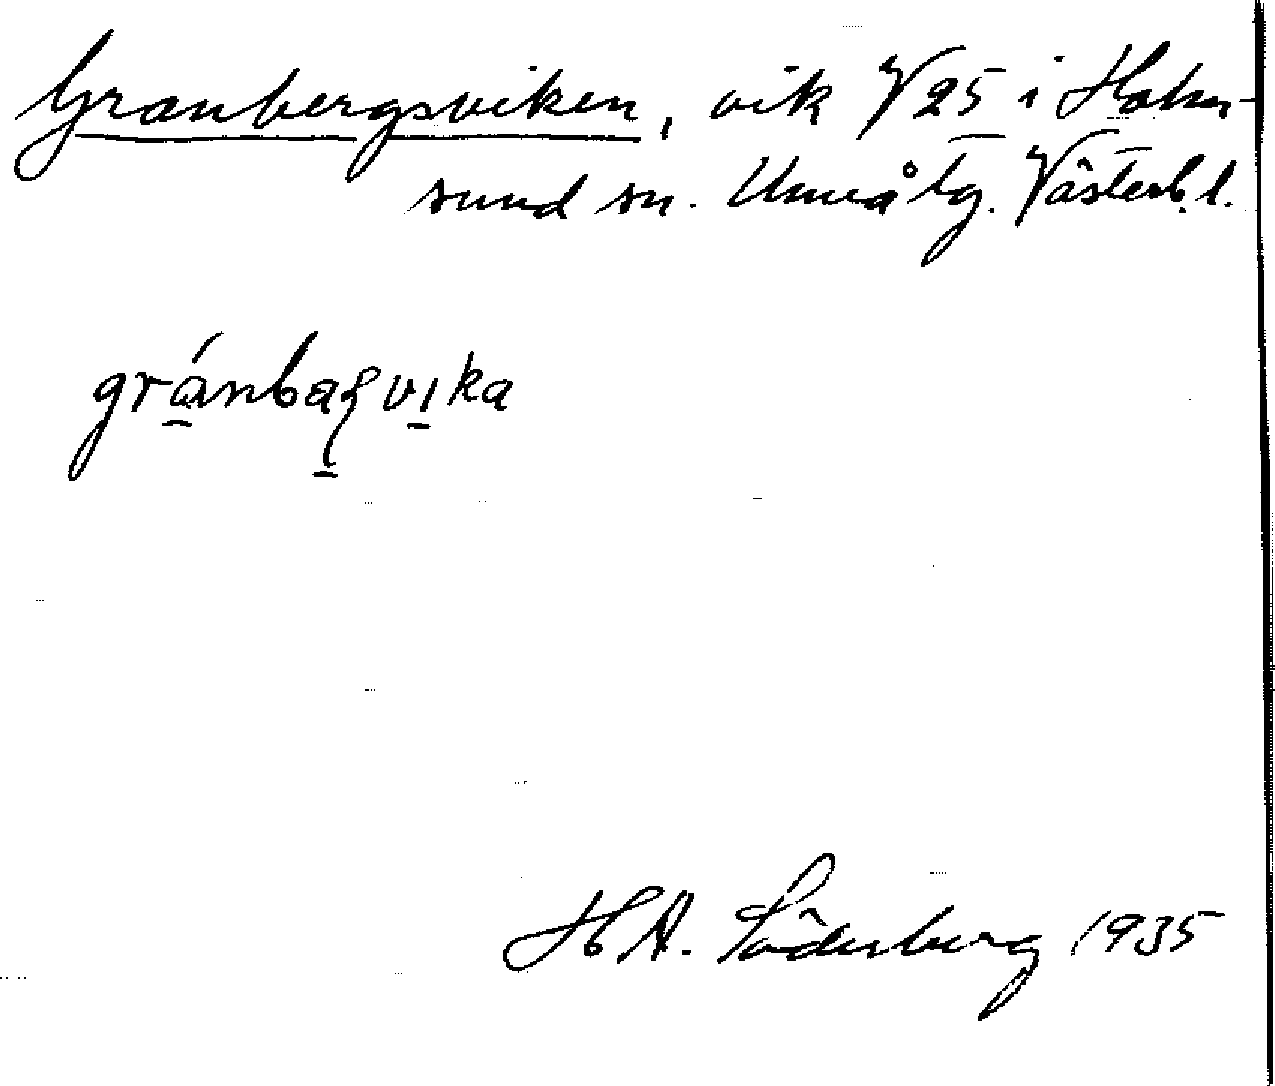 Granbergsviken, vik V 25 i Holm-
sund sn. Umeå tg. Västerb. l.
H A. Söderberg 1935